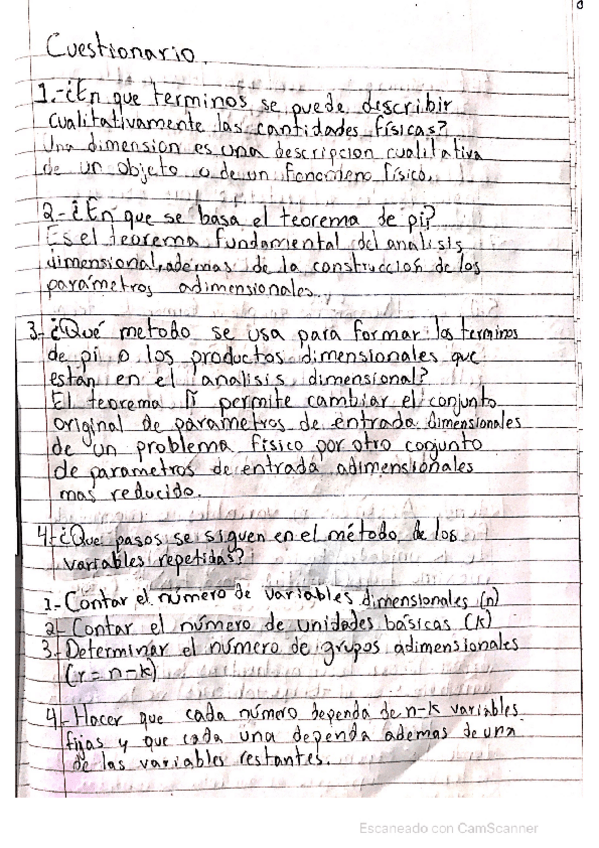 Cuestionario.
1.-¿En que terminos se puede describir
cualitativamente las cantidades físicas?
Una dimension es una descripcion cualitativa
de un objeto o de un fenomeno físico.
2-¿En que se basa el teorema de pi?
Es el teorema fundamental del analisis
dimensional, ademas de la construccion de los
parámetros adimensionales.
3-¿Qué metodo se usa para formar los terminos
de pi o los productos dimensionales que
están en el analisis dimensional?
El teorema Π permite cambiar el conjunto
original de parametros de entrada dimensionales
de un problema físico por otro conjunto
de parametros de entrada adimensionales
mas reducido.
4-¿Que pasos se siguen en el método de los
variables repetidas?
1.- Contar el número de variables dimensionales (n)
2- Contar el número de unidades básicas (k)
3- Determinar el número de grupos adimensionales
(r = n-k)
4- Hacer que cada número dependa de n-k variables
fijas y que cada una dependa ademas de una
de las variables restantes.
Escaneado con CamScanner